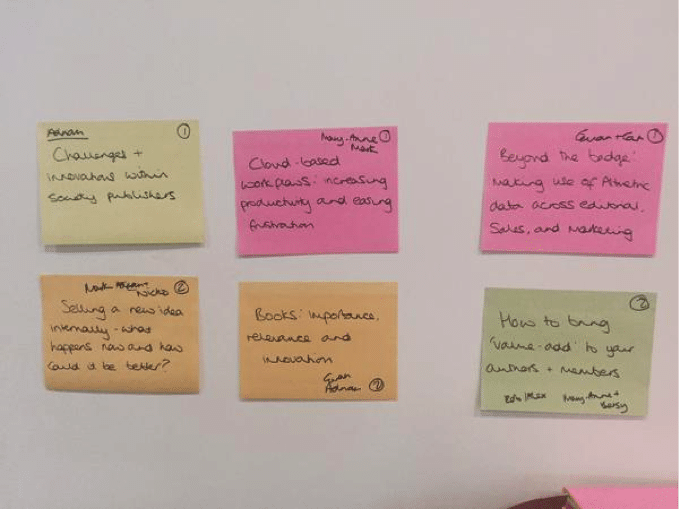 Adnan ①
Challenges +
innovations within
society publishers
Mary-Anne ①
Mark
Cloud-based
workflows: increasing
productivity and easing
frustration
Euan + Cat ①
Beyond the badge:
making use of Altmetric
data across editorial,
Sales, and Marketing
Mark Adnan + ②
Nicko
Selling a new idea
internally - what
happens now and how
could it be better?
Books: importance,
relevance and
innovation
Euan
Adnan ②
②
How to bring
'value-add' to your
authors + members
Alex Mary-Anne +